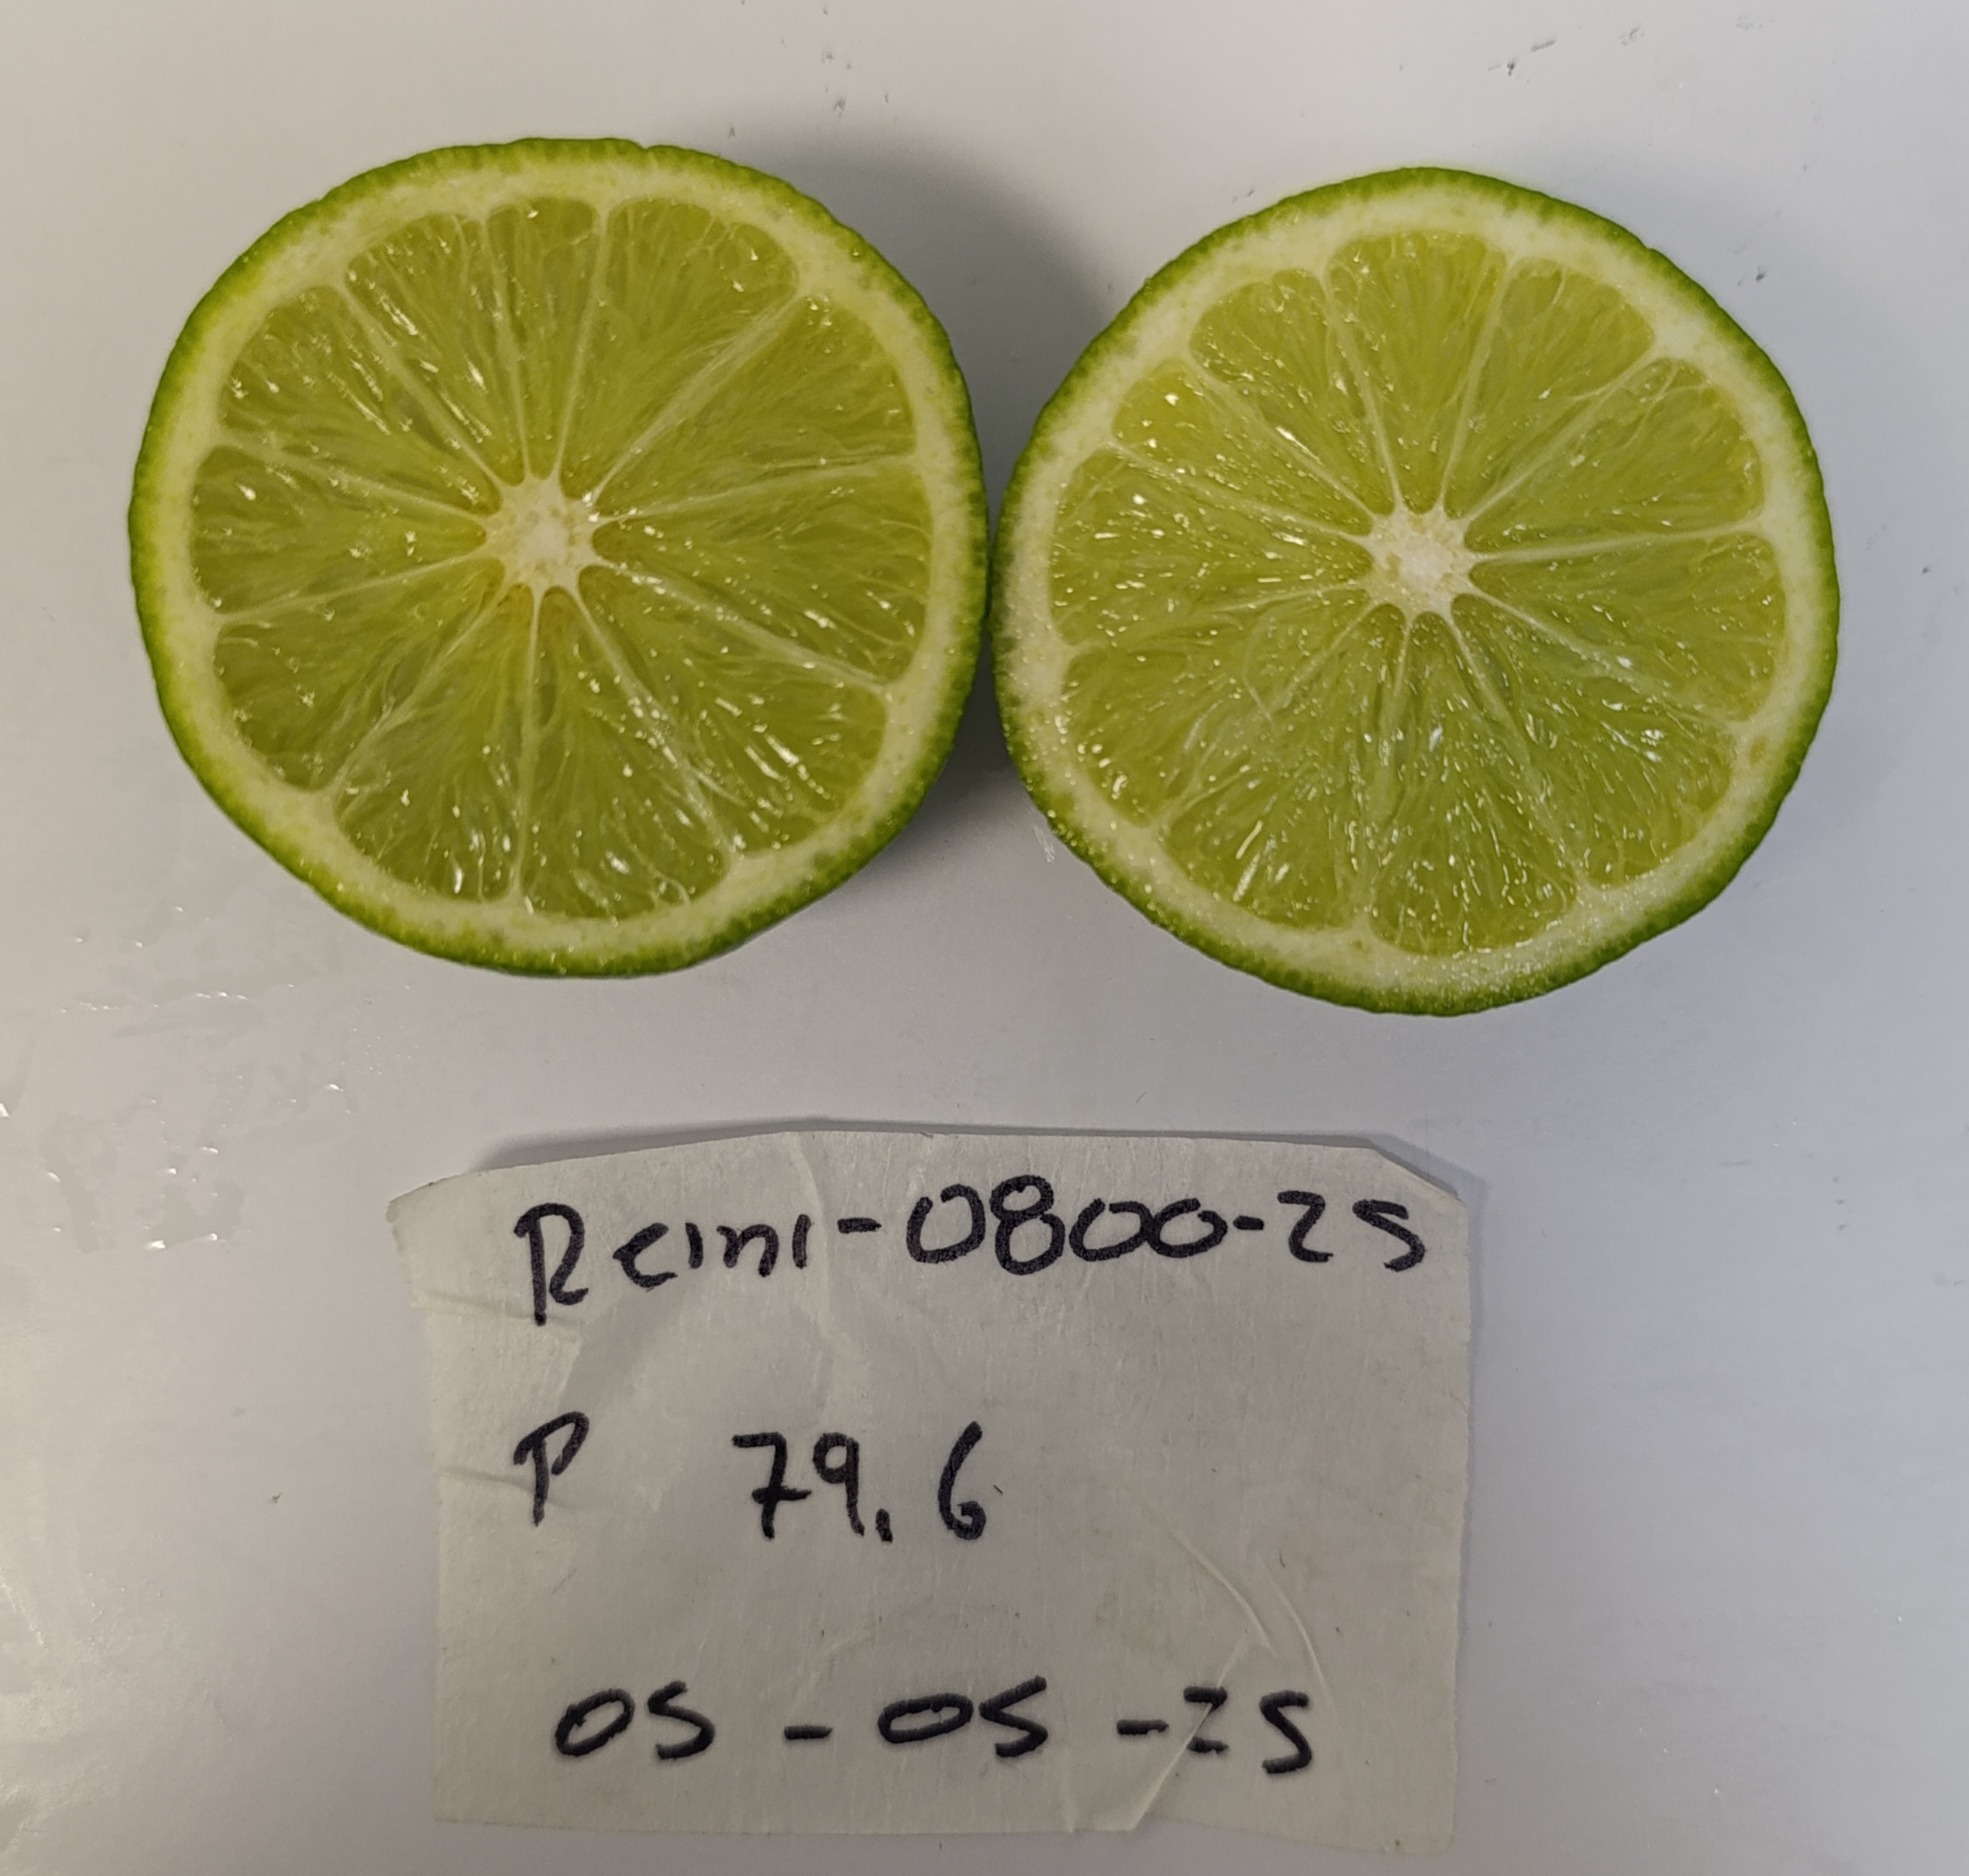 Reini-0800-25
P 79.6
05-05-25